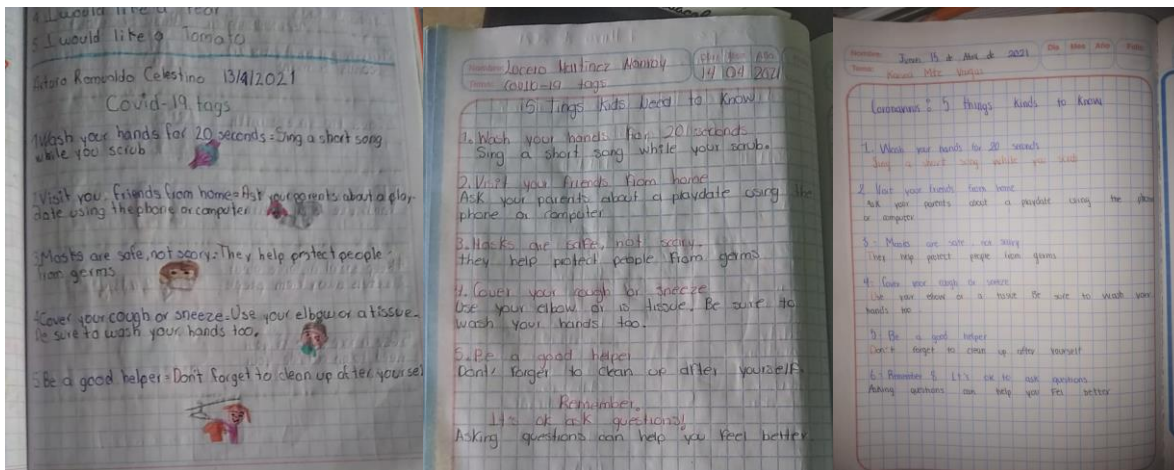 4. I would like a Pear
5. I would like a Tomato
Arturo Romualdo Celestino 13/4/2021
Covid-19 tags
1. Wash your hands for 20 seconds = Sing a short song
while you scrub
2. Visit you. friends from home = Ask your parents about a play-
date using the phone or computer
3. Masks are safe, not scary = They help protect people
from germs
4. Cover your cough or sneeze = Use your elbow or a tissue.
Be sure to wash your hands too.
5. Be a good helper = Don't forget to clean up after yoursel
Nombre: Martinez
Tema: Covid-19 tags
Día Mes Año
14 04 2021
5 Tings kids Need to Know
1. Wash your hands for 20 seconds
Sing a short song while your scrub.
2. Visit your friends from home
Ask your parents about a playdate using the
phone or computer
3. Macks are safe, not scary.
they help protect people from germs
4. Cover your cough or sneeze
Use your elbow or is tissue. Be sure to
wash your hands too.
5. Be a good helper
Dont forger to clean up after yourself.
Remamber.
It's ok ask questions!
Asking questions can help you feel better
Nombre: 2021
Tema: Mtz Vargas
Día Mes Año
Coronavirus: 5 things kieds to know
1. Wash your hands for 20 seconds
Sing a short song while you scrub
2. Visit your friends from home
Ask your parents about a playdate using the phone
or computer
3.- Masks are safe not scary
They help protect people from germs
4. Cover your cough or sneeze
Use your elbow or a tissue Be sure to wash your
hands too
5. Be a good helper
Don't forget to clean up after yourself
6.- Remember &. It's ok to ask questions
Asking questions can help you feel better